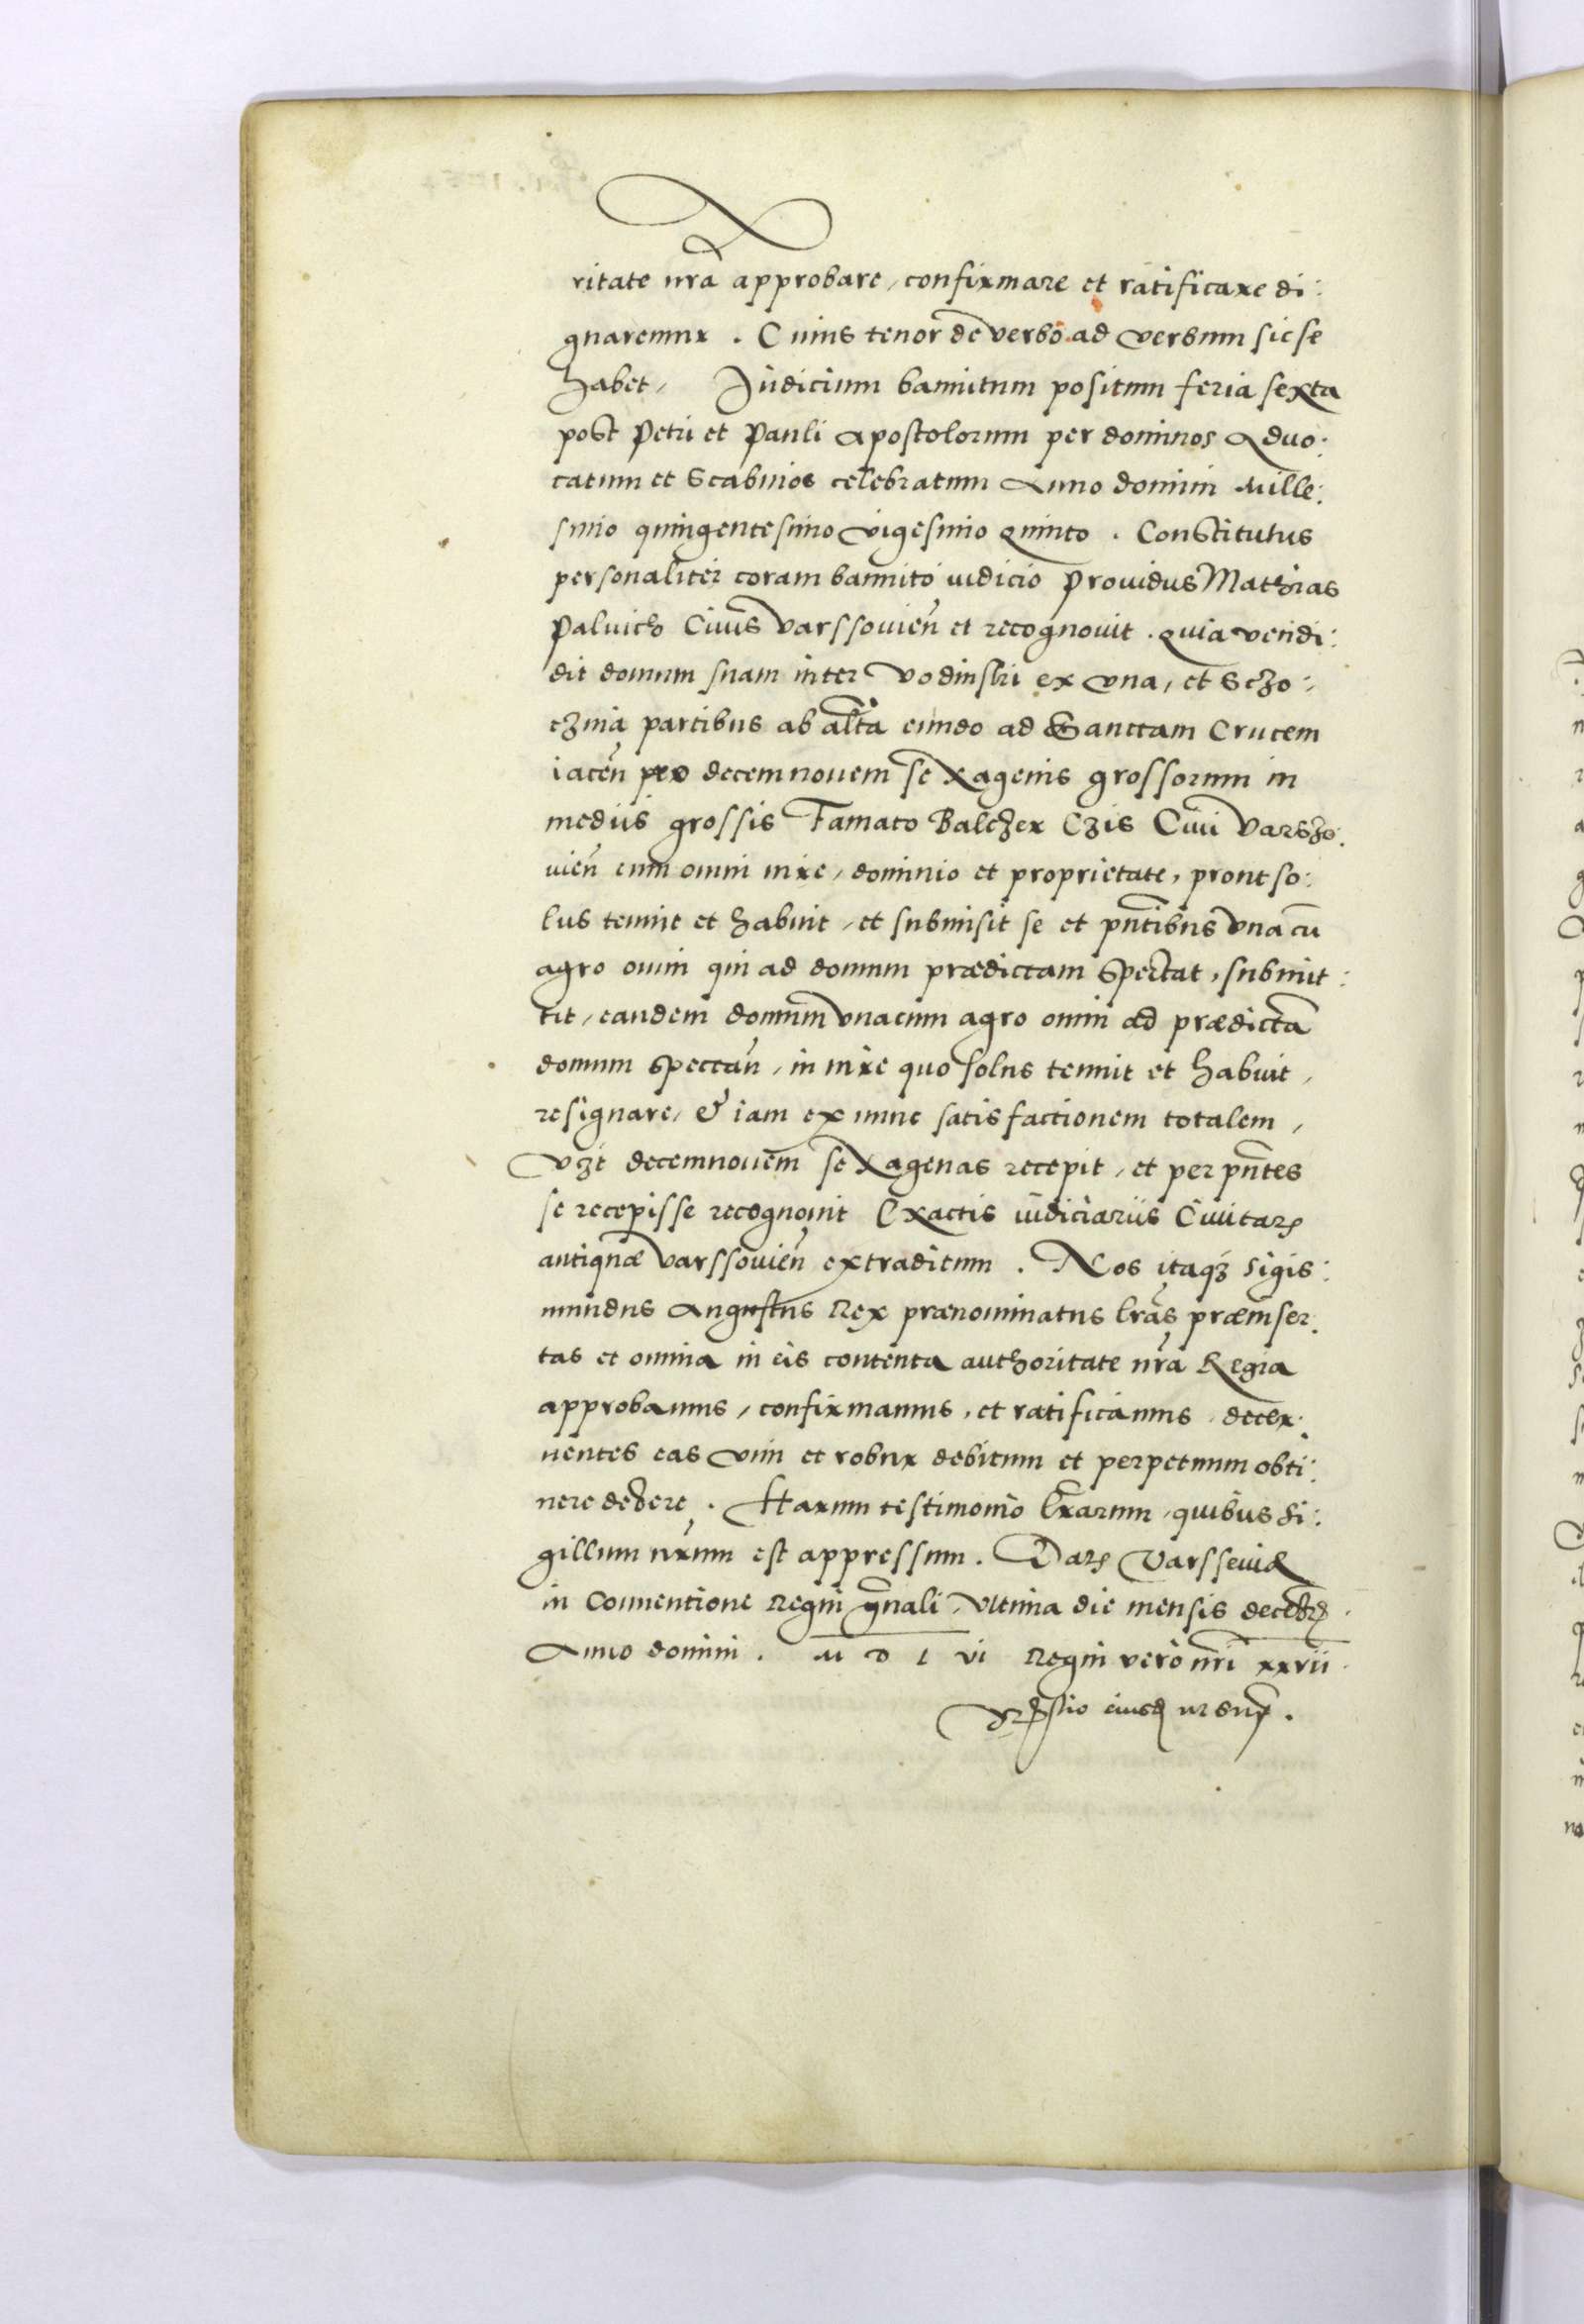 ritate nrã approbare, confirmare et ratificare di:
gnaremur. Cuius tenor de verbo ad verbum sic se
habet, Judicium bannitum positum feria sexta
post Petri et Pauli Apostolorum per dominos Aduo:
catum et Scabinos celebratum Anno domini Mille:
simo quingentesimo vigesimo quinto. Constitutus
personaliter coram bannito iudicio Prouidus Mathias
Paluich Ciuis Varssouieñ et recognouit. quia vendi:
dit domum suam inter Vodinski ex vna, et Sczo:
czina partibus ab alťa eundo ad Sanctam Crucem
iaceñ pro decemnouem sexagenis grossorum in
mediis grossis Famato Balczer Czis Ciui Varszo:
uieñ cum omni iure, dominio et proprietate, prout so:
lus tenuit et habuit, et submisit se et pñtibus vna cũ
agro omni qui ad domum prædictam spectat, submit:
tit, eandem domum vnacum agro omni ad prædictã
domum spectañ, in iure quo solus tenuit et habuit,
resignare, & iam ex nunc satisfactionem totalem,
vzt decemnouem sexagenas recepit, et per pñtes
se recepisse recognouit Ex actis iudiciariis Ciuitatꝭ
antiquæ Varssouieñ extraditum. Nos itaqꝫ Sigis:
mundus Augustus Rex prænominatus lrãs præinser:
tas et omnia in eis contenta authoritate nrã Regia
approbamus, confirmamus, et ratificamus, decer:
nentes eas vim et robur debitum et perpetuum obti:
nere debere. Harum testimonio lrãrum, quibus si:
gillum nr̃um est appressum. Datꝭ Varsseuiæ
in Conuentione Regni gñali, vltima die mensis decebrꝭ.
Anno domini. M D L VI Regni vero nrĩ xxvii.
eiusdꝭ